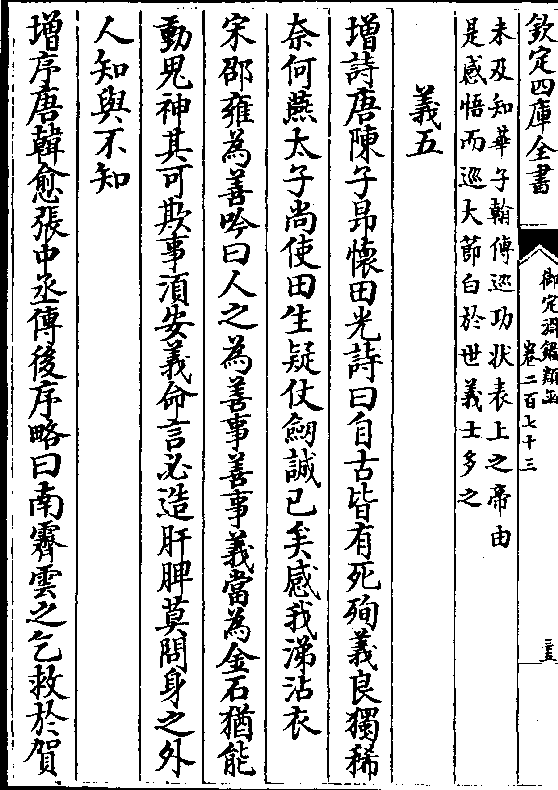 欽定四庫全書
御定淵鑑類函
卷二百七十三
未及知華子翰傳廵功狀表上之帝由
是感悟而廵大節白於世義士多之
義五
增詩唐陳子昂懷田光詩曰自古皆有死殉義良獨稀
奈何燕太子尚使田生疑仗劒誠已矣感我涕沾衣
宋邵雍為善吟曰人之為善事善事義當為金石猶能
動鬼神其可欺事須安義命言必造肝脾莫問身之外
人知與不知
增序唐韓愈張中丞傳後序略曰南霽雲之乞救於賀